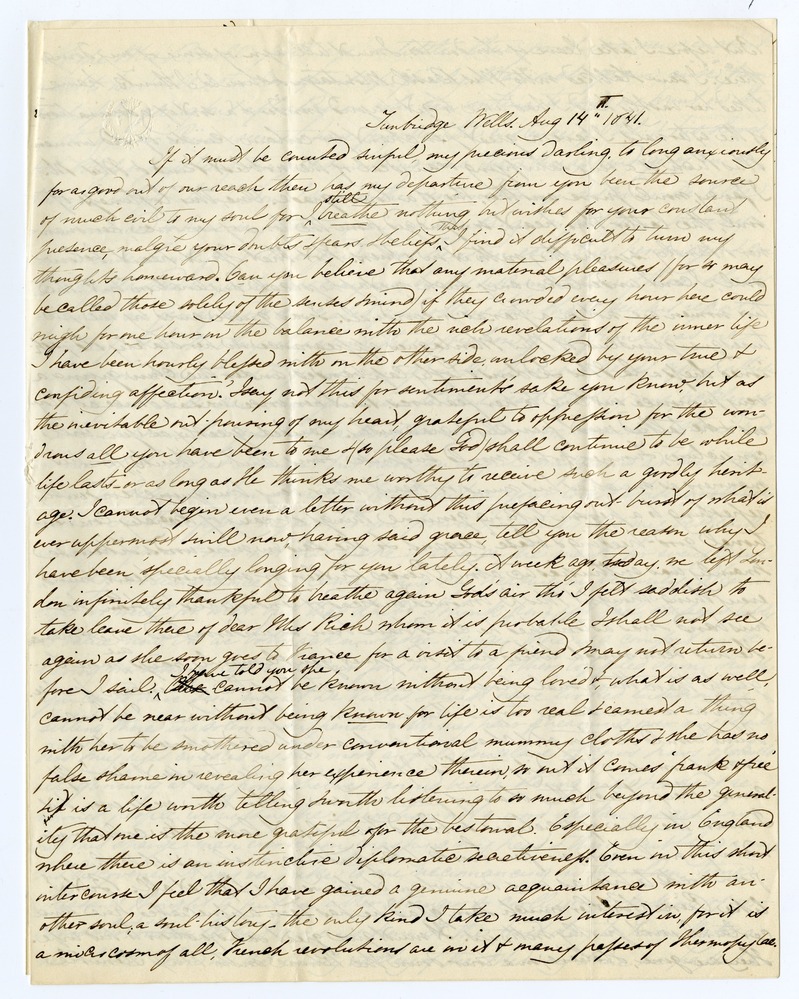 Tunbridge Wells. Aug 14th 1841.
If it must be counted sinful, my precious darling, to long anxiously
for a good out of our reach then has my departure from you been the source
of much evil to my soul for I still breathe nothing but wishes for your constant
presence, malgré your doubts & fears & beliefs, that I find it difficult to turn my
thoughts homeward. Can you believe that any material pleasures (for so may
be called those solely of the senses & mind) if they crowded every hour here could
weigh for one hour in the balance with the rich revelations of the inner life
I have been hourly blessed with on the other side, unlocked by your true &
confiding affection? I say not this for sentiment's sake you know, but as
the inevitable out-pouring of my heart, grateful to oppression for the won-
drous all you have been to me & (so please God) shall continue to be while
life lasts or as long as He thinks me worthy to receive such a goodly herit-
age. I cannot begin even a letter without this prefacing out-burst of what is
ever uppermost & will now, having said grace, tell you the reason why I
have been 'specially longing for you lately. A week ago, today, we left Lon-
don infinitely thankful to breathe again God's air tho' I felt saddish to
take leave there of dear Mrs Rich whom it is probable I shall not see
again as she soon goes to France for a visit to a friend & may not return be-
fore I sail. I have told you she cannot be known without being loved & what is as well,
cannot be near without being known, for life is too real & earnest a thing
with her to be smothered under conventional mummy cloths & she has no
false shame in revealing her experience therein, so out it comes "frank & free"
& it is a life worth telling & worth listening to so much beyond the general-
ity that one is the more grateful for the bestowal. Especially in England
where there is an instinctive diplomatic secretiveness. Even in this short
intercourse I feel that I have gained a genuine acquaintance with an-
other soul, a soul-history - the only kind I take much interest in, for it is
a microcosm of all, French revolutions are in it & many passes of Thermopylae.